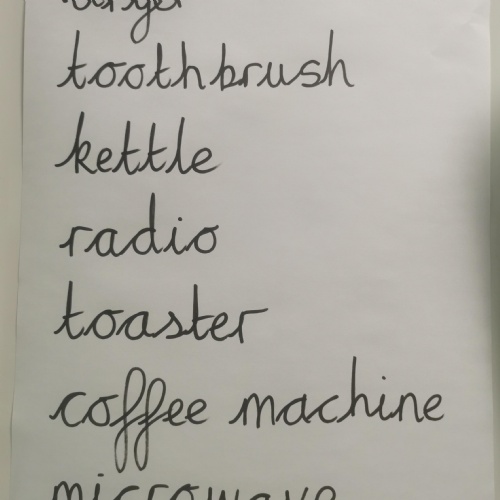 toothbrush
kettle
radio
toaster
coffee machine
microwave